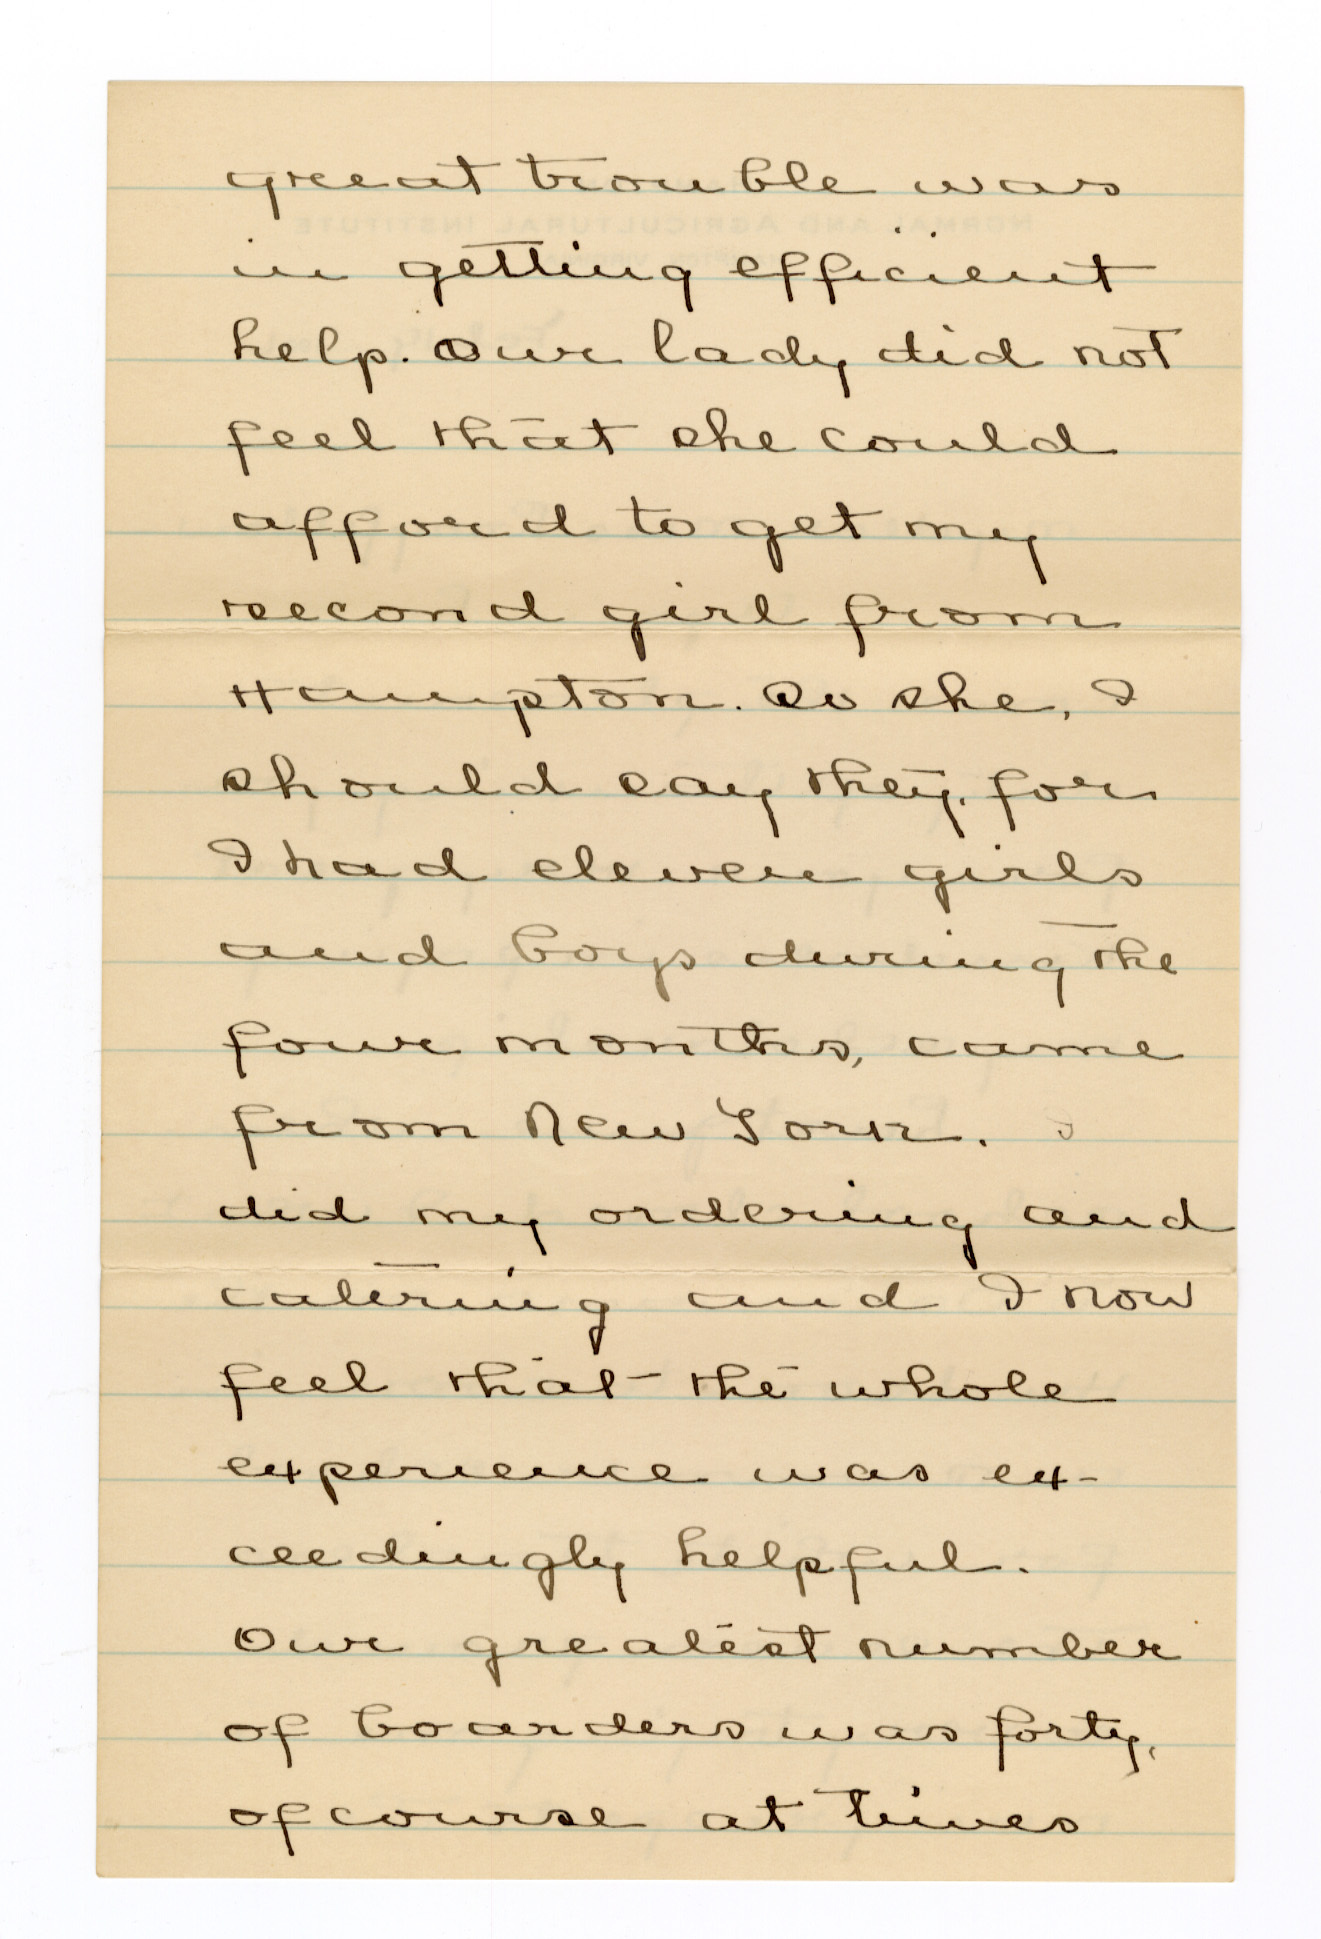 great trouble was
in getting efficient
help. Our lady did not
feel that she could
afford to get my
second girl from
Hampton. So she, I
should say they, for
I had eleven girls
and boys during the
four months, came
from New York. I
did my ordering and
catering and I now
feel that the whole
experience was ex-
ceedingly helpful.
Our greatest number
of boarders was forty,
of course at times